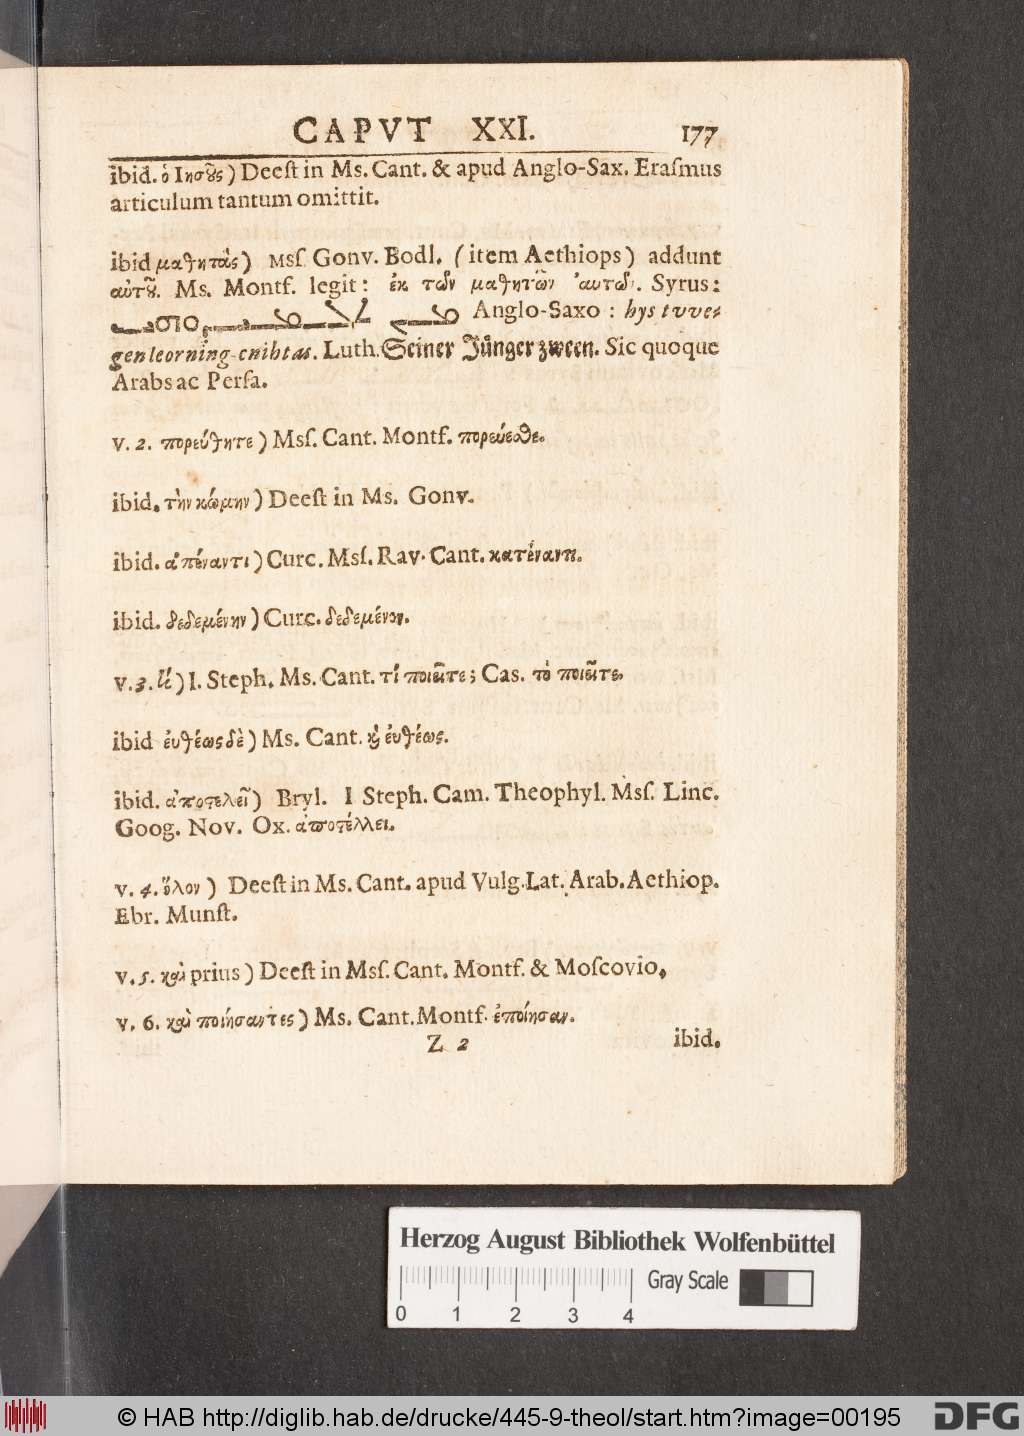 CAPVT XXI. 177
ibid. ὁ Ιησοῦς) Deeſt in Ms. Cant. & apud Anglo-Sax. Eraſmus
articulum tantum omittit.
ibid μαθητὰς) Msſ. Gonv. Bodl. (item Aethiops) addunt
αὐτοῦ. Ms. Montf. legit: ἐκ τῶν μαθητῶν αυτοῦ. Syrus:
Anglo-Saxo: hys tvve-
gen leorning-cnihtas. Luth. Seiner Jünger zween. Sic quoque
Arabs ac Perſa.
v. 2. πορεύθητε) Msſ. Cant. Montf. πορεύεσθε.
ibid. τὴν κώμην) Deeſt in Ms. Gonv.
ibid. ἀπέναντι) Curc. Msſ. Rav. Cant. κατέναντι.
ibid. δεδεμένην) Curc. δεδεμένον.
v. 3. τί) I. Steph. Ms. Cant. τί ποιεῖτε; Cas. τὸ ποιεῖτε.
ibid ἐυθέως δὲ) Ms. Cant. καὶ ἐυθέως.
ibid. ἀποστελεῖ) Bryl. I Steph. Cam. Theophyl. Msſ. Linc.
Goog. Nov. Ox. ἀποστέλλει.
v. 4. ὅλον) Deeſt in Ms. Cant. apud Vulg. Lat. Arab. Aethiop.
Ebr. Munſt.
v. 5. καὶ prius) Deeſt in Msſ. Cant. Montf. & Moſcovio.
v. 6. καὶ ποιήσαντες) Ms. Cant. Montf. ἐποίησαν.
Z 2 ibid.
Herzog August Bibliothek Wolfenbüttel
Gray Scale
0 1 2 3 4
© HAB http://diglib.hab.de/drucke/445-9-theol/start.htm?image=00195
DFG